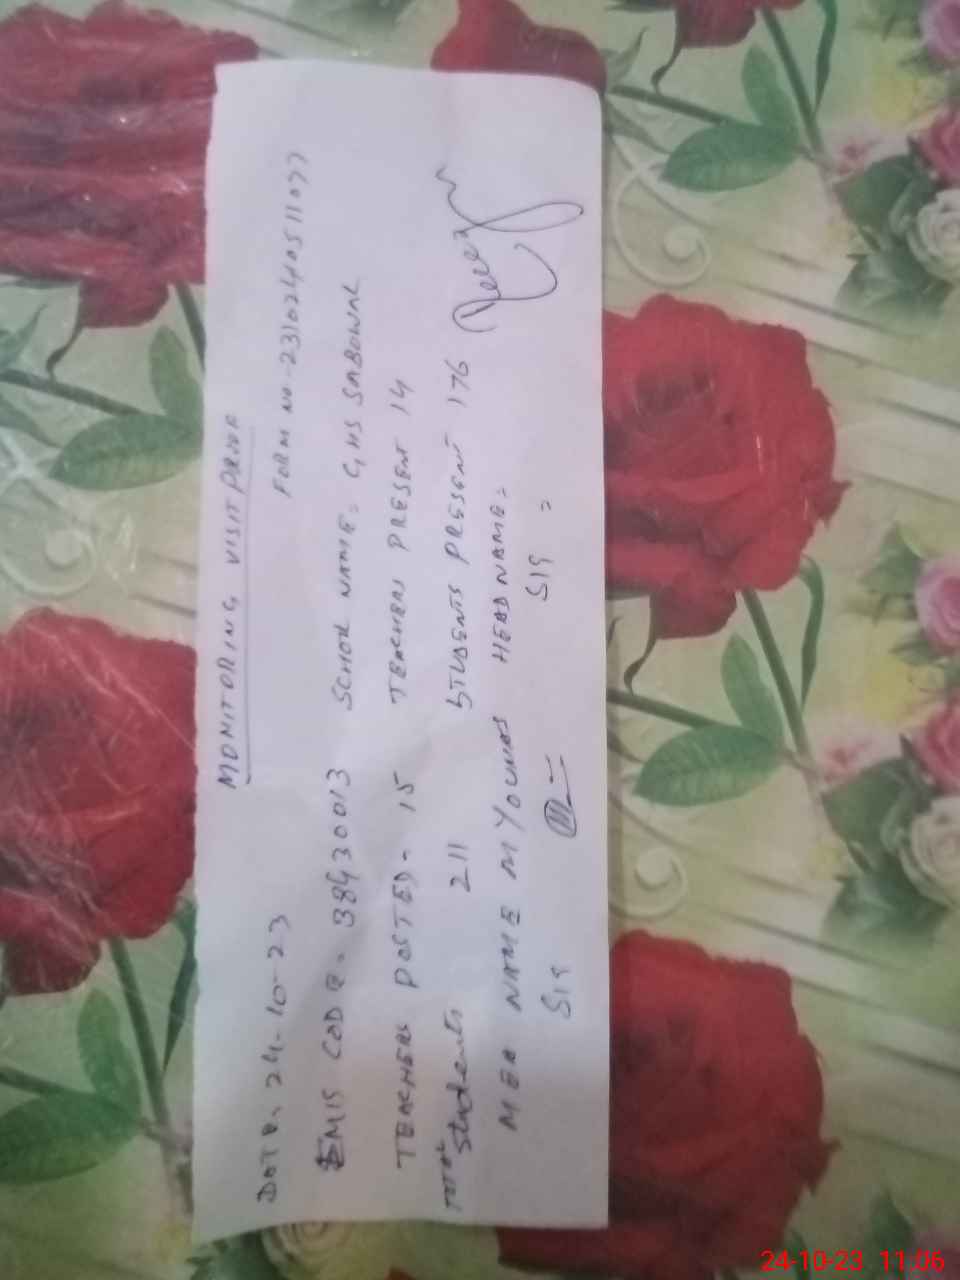 MONITORING VISIT PROOF
DATE. 24-10-23 FORM NO-231024051107?
EMIS CODE. 38430013 SCHOOL NAME. GHS SABOWAL
TEACHERS POSTED- 15 TEACHERS PRESENT 14
Total Students 211 STUDENTS PRESENT 176
MEA NAME M YOUNAS HEAD NAME.
Sig Sig
24-10-23 11:06